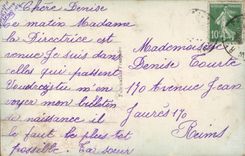 Chère Denise
Ce matin Madame
la Directrice est
venue Je suis dans
celles qui passent
Voudrais-tu m'en
voyer mon bulletin
de naissance il
le faut le plus tôt
possible. Ta sœur
Mademoiselle
Denise Tourte
170 Avenue Jean
Jaurès 170
Reims
10